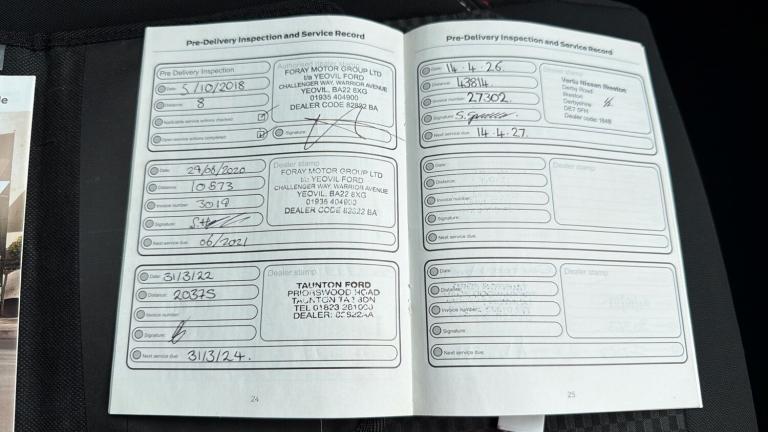 Pre-Delivery Inspection and Service Record
Pre Delivery Inspection
Date: 5/10/2018
Distance: 8
Applicable service actions checked:
Open service actions completed:
Signature:
Authorised dealer stamp
FORAY MOTOR GROUP LTD
t/a YEOVIL FORD
CHALLENGER WAY, WARRIOR AVENUE
YEOVIL, BA22 8XG
01935 404900
DEALER CODE 82822 BA
Date:
Distance: 10873
Invoice number: 3019
Signature:
Next service due: 06/2021
Dealer stamp
FORAY MOTOR GROUP LTD
t/a YEOVIL FORD
CHALLENGER WAY, WARRIOR AVENUE
YEOVIL, BA22 8XG
01935 404900
DEALER CODE 82822 BA
Date: 31/3/22
Distance: 20375
Invoice number:
Signature:
Next service due: 31/3/24.
Dealer stamp
TAUNTON FORD
PRIORSWOOD ROAD
TAUNTON
TEL 01823
DEALER:
24
Pre-Delivery Inspection and Service Record
Date: 14.4.26.
Distance: 43814.
Invoice number: 27302.
Signature:
Next service due: 14.4.27.
Vertu Nissan Ilkeston
Derby Road
Ilkeston
Derbyshire
DE7 5FH
Dealer code:
Date:
Distance:
Invoice number:
Signature:
Next service due:
Dealer stamp
Date:
Distance:
Invoice number:
Signature:
Next service due:
Dealer stamp
25